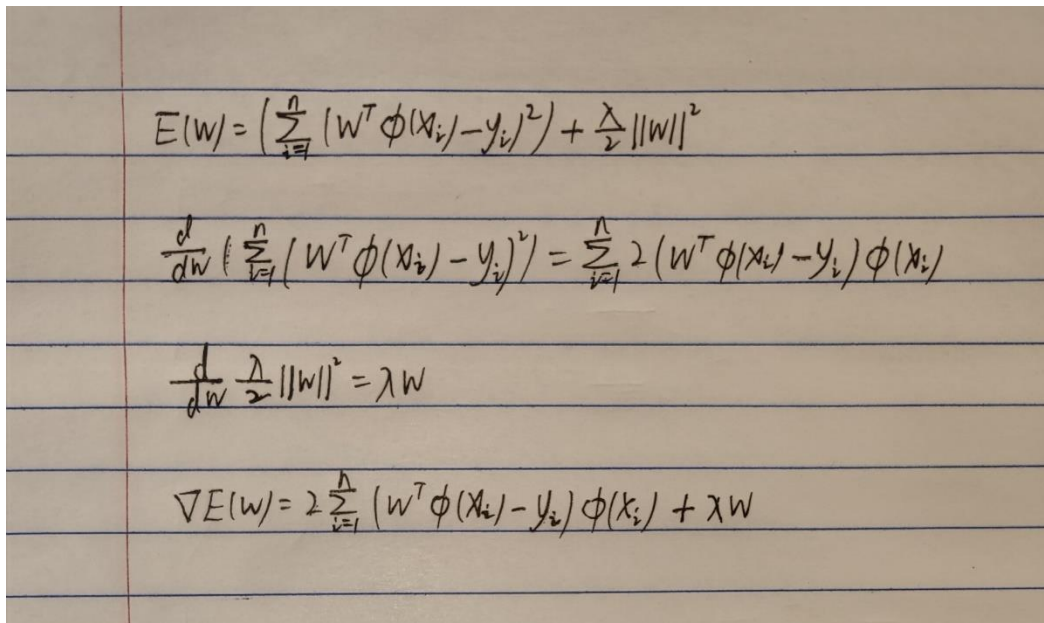 E(W) = (∑_{i=1}^{n} (W^T φ(x_i) − y_i)^2) + λ/2 ||W||^2
d/dW (∑_{i=1}^{n} (W^T φ(x_i) − y_i)^2) = ∑_{i=1}^{n} 2 (W^T φ(x_i) − y_i) φ(x_i)
d/dW λ/2 ||W||^2 = λW
∇E(W) = 2 ∑_{i=1}^{n} (W^T φ(x_i) − y_i) φ(x_i) + λW